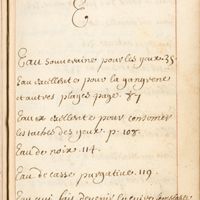 E
Eau souveraine pour les yeux 35
Eau excellente pour la gangrene
et autres playes page. 87
Eaux excellente pour consomer
les taches des yeux p. 108.
Eau de noix 114.
Eau de casse purgative 119.
Eau qui fais devenir